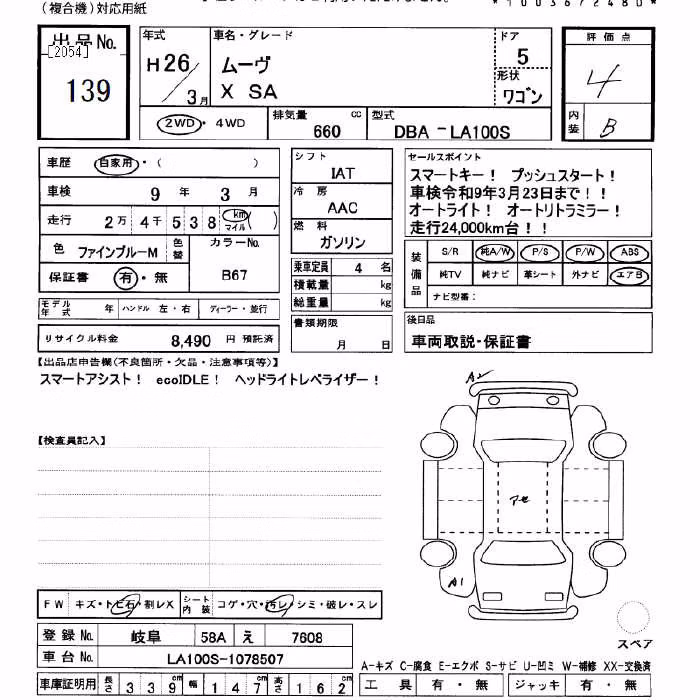 (複合機)対応用紙
*10036724 80*
出品No.
[2054]
139
年式
H26/3月
車名・グレード
ムーヴ
X SA
ドア
5
形状
ワゴン
評価点
4
内装
B
2WD・4WD
排気量 cc
660
型式
DBA-LA100S
車歴 自家用・( )
車検 9年 3月
走行 2万4千538 km マイル ( )
色 ファインブルーM 色替
カラーNo.
B67
保証書 有・無
モデル年式 年 ハンドル 左・右 ディーラー・並行
リサイクル料金 8,490 円 預託済
シフト
IAT
冷房
AAC
燃料
ガソリン
乗車定員 4 名
積載量 kg
総重量 kg
書類期限
月 日
セールスポイント
スマートキー! プッシュスタート!
車検令和9年3月23日まで!!
オートライト! オートリトラミラー!
走行24,000km台!!
装備品
S/R 純A/W P/S P/W ABS
純TV 純ナビ 革シート 外ナビ エアB
ナビ型番:
後日品
車両取説・保証書
【出品店申告欄(不良箇所・欠品・注意事項等)】
スマートアシスト! ecoIDLE! ヘッドライトレベライザー!
【検査員記入】
アセ
A1
FW キズ・トビ石・割レX
シート内装 コゲ・穴・汚レ・シミ・破レ・スレ
登録No. 岐阜 58A え 7608
車台No. LA100S-1078507
車庫証明用 長さ 339cm 幅 147cm 高さ 162cm
スペア
A-キズ C-腐食 E-エクボ S-サビ U-凹ミ W-補修 XX-交換済
工具 有・無 ジャッキ 有・無